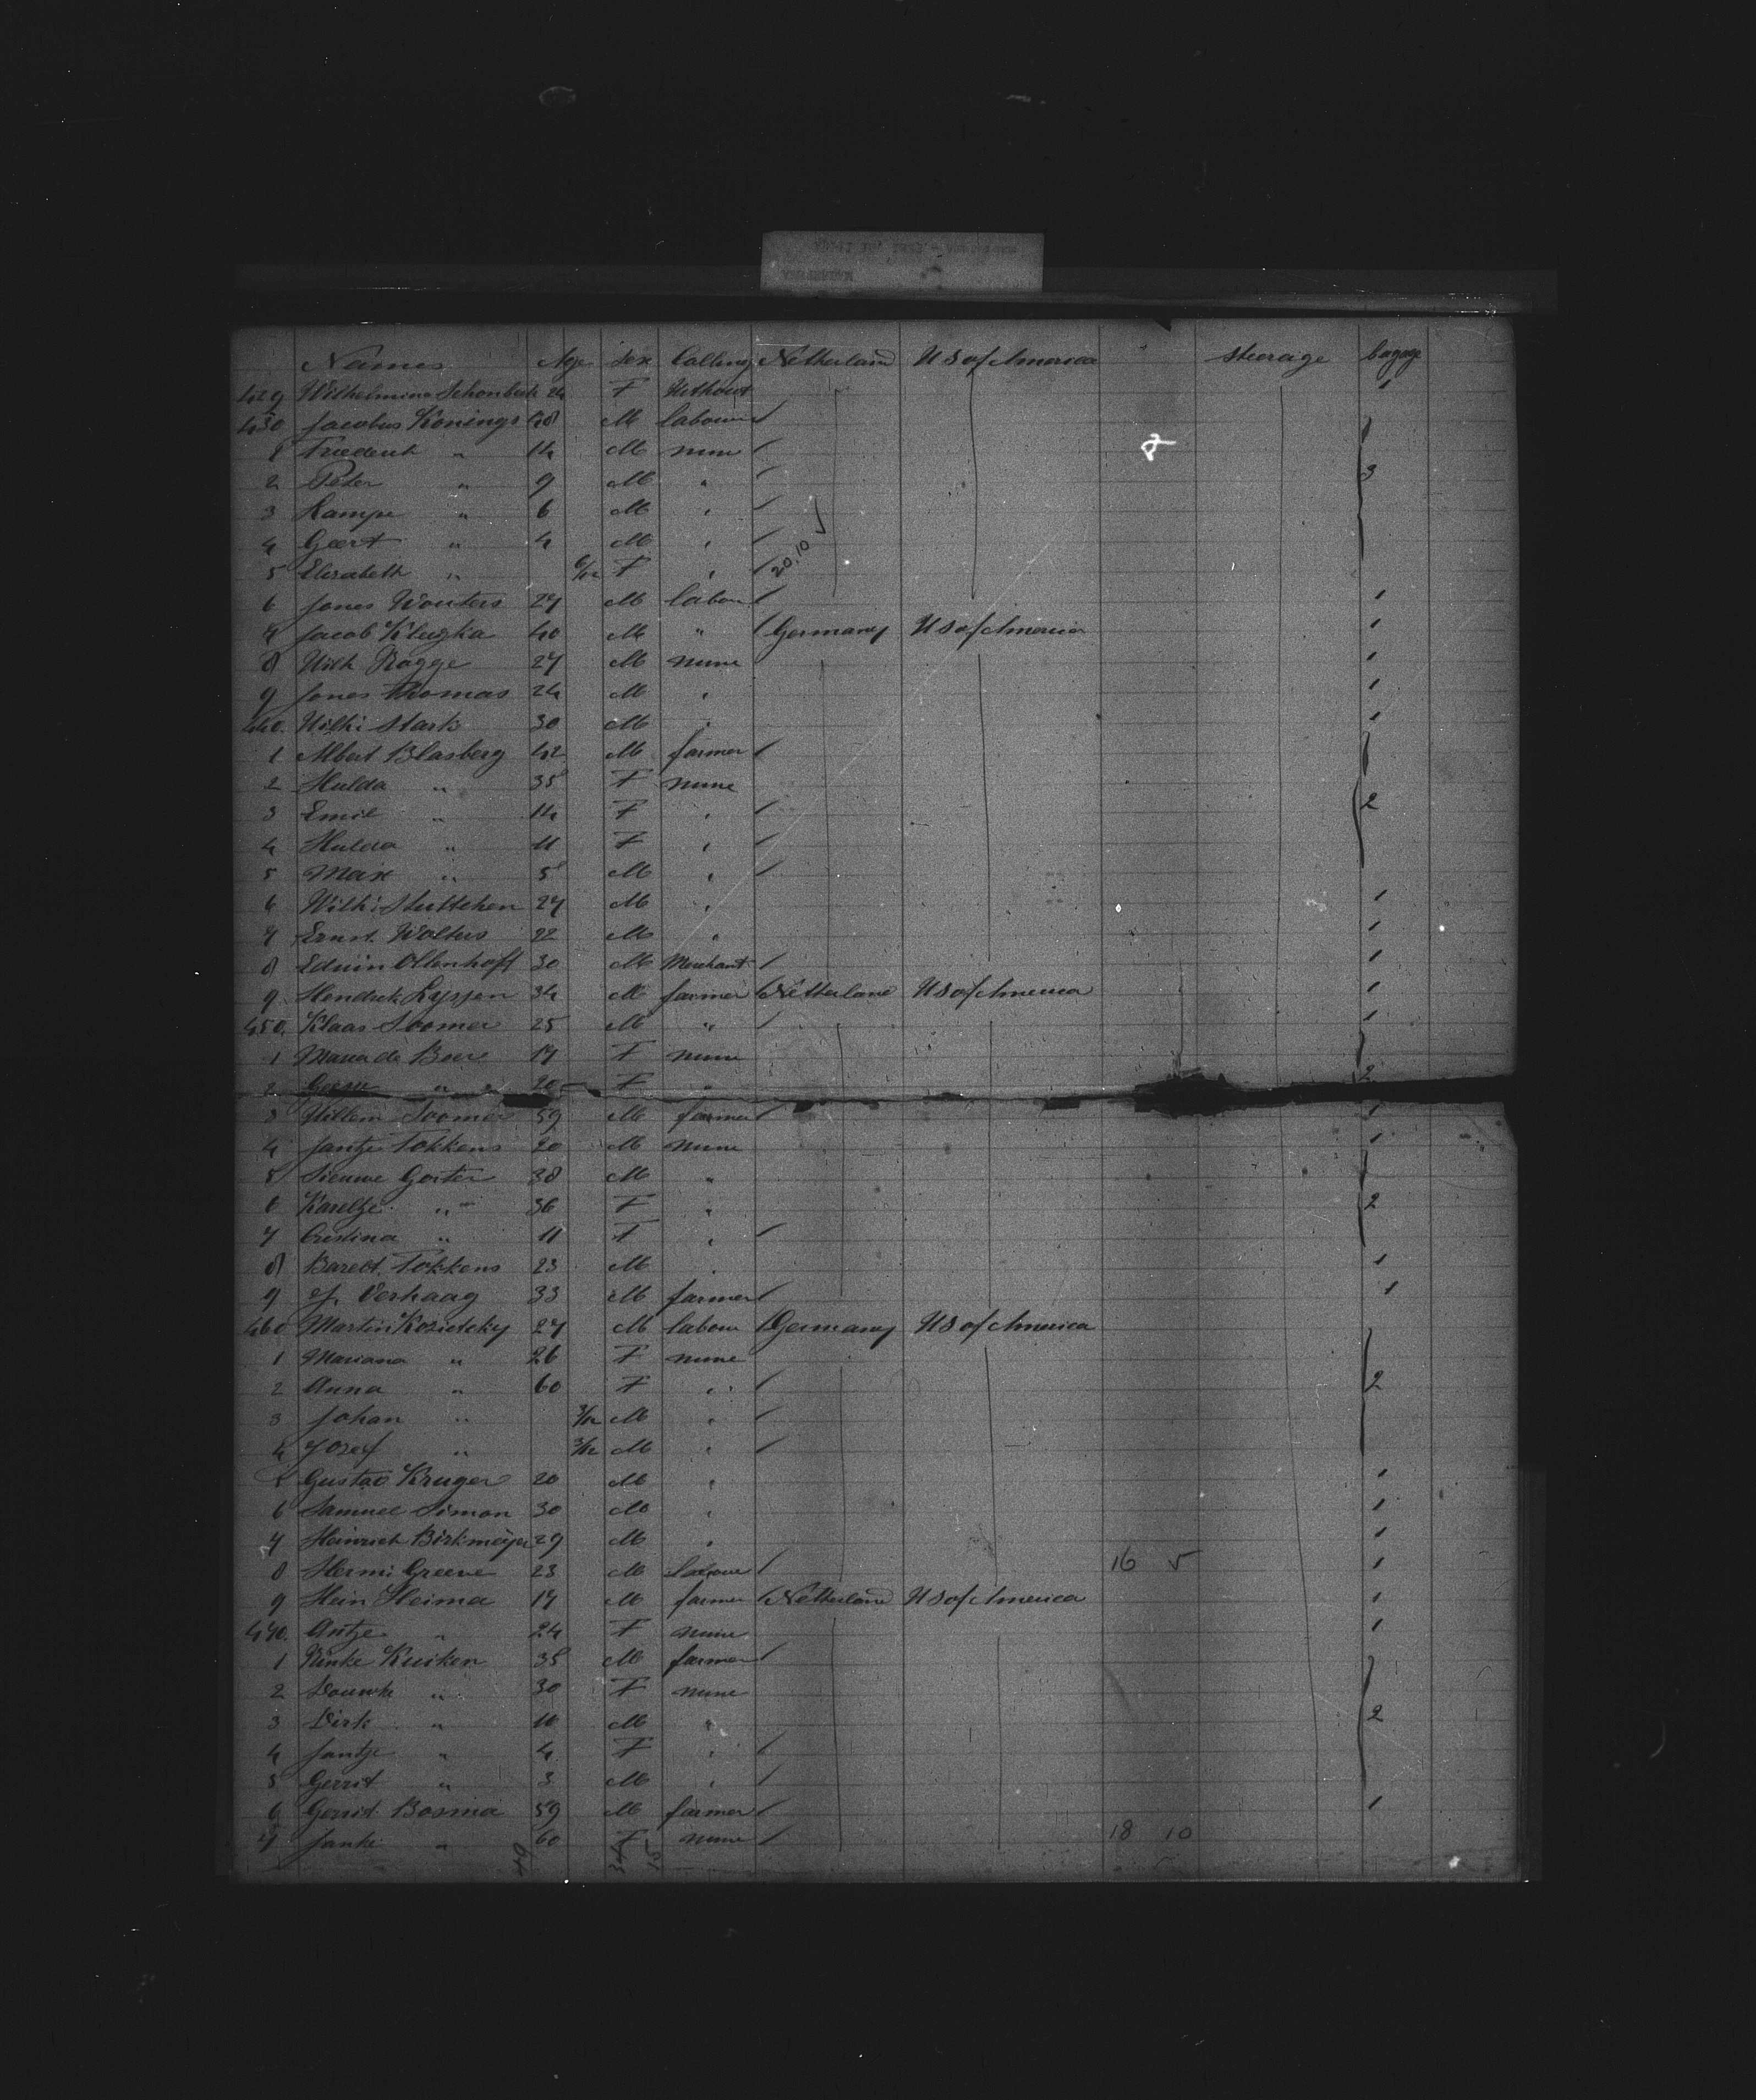 Names Age Sex Calling Netherland U S of America steerage bagage
429 Wilhelmina Schonbeck 24 F Without 1
430 Jacobus Konings 48 M labour
1 Frederik " 14 M none
2 Peter " 9 M " 3
3 Kampe " 6 M "
4 Geert " 4 M "
5 Elisabeth " 6/12 F " 20.10
6 Jones Wouters 27 M labour 1
7 Jacob 40 M " Germany U S of America 1
8 Wilh Rogge 27 M none 1
9 Jones Thomas 24 M " 1
440. Wilh: Stark 30 M " 1
1 Albert Blasberg 42 M farmer
2 Hulda " 35 F none
3 Emil " 14 F " 2
4 Hulda " 11 F "
5 Max " 5 M "
6 Wilh: Stuttchen 27 M " 1
7 Ernst Wolters 22 M " 1
8 Edwin Ollenhoft 30 M Merchant 1
9 Hendrik Lyssen 34 M farmer Netherland U S of America 1
450. Klaas Soomer 25 M " 1
1 Maria de Boer 17 F none
2 " 20 F " 2
3 Willem Soomer 59 M farmer 1
4 Jantje Fokkens 20 M none 1
5 Sieuwe Gorter 38 M "
6 Kareltje " 36 F " 2
7 Cristina " 11 F "
8 Barelt Fokkens 23 M " 1
9 J. Verhaag 33 M farmer 1
460 Martin Kosietcky 27 M labour Germany U S of America
1 Mariana " 26 F none
2 Anna " 60 F " 2
3 Johan " 3/12 M "
4 Josef " 3/12 M "
5 Gustav Kruger 20 M " 1
6 Samuel Simon 30 M " 1
7 Heinrich Birkmeijer 29 M " 1
8 Herm: Greeve 23 M labour 16 5 1
9 Hein Heima 17 M farmer Netherland U S of America 1
470. Antje " 24 F none 1
1 Rinke Kuiken 35 M farmer
2 Douwke " 30 F none
3 Dirk " 10 M " 2
4 Jantje " 4 F "
5 Gerrit " 3 M "
6 Gerrit Bosma 59 M farmer 1
7 Janke " 60 F none 18 10
49 34 15